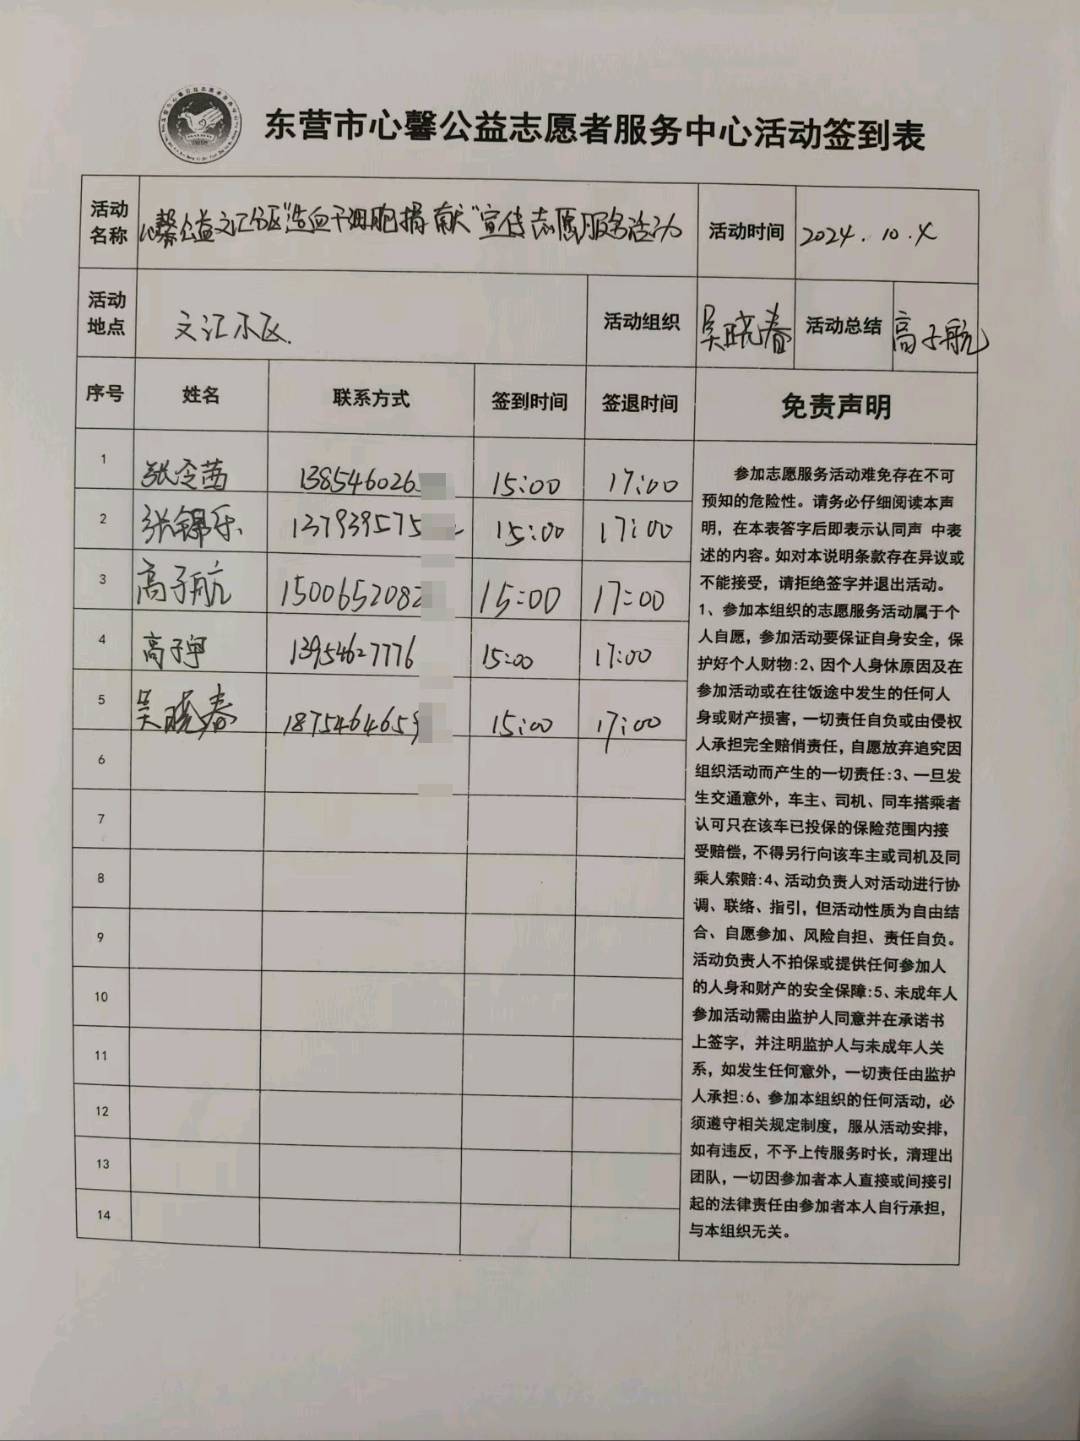 东营市心馨公益志愿者服务中心活动签到表
活动名称 心馨公益文汇分区"造血干细胞捐献"宣传志愿服务活动 活动时间 2024.10.4
活动地点 文汇小区. 活动组织 吴晓春 活动总结 高子航
序号 姓名 联系方式 签到时间 签退时间 免责声明
1 张令茜 138546026 15:00 17:00
2 张锦乐 137939575 15:00 17:00
3 高子航 1500652082 15:00 17:00
4 高子宁 13954627776 15:00 17:00
5 吴晓春 187546465 15:00 17:00
6
7
8
9
10
11
12
13
14
参加志愿服务活动难免存在不可
预知的危险性。请务必仔细阅读本声
明，在本表答字后即表示认同声 中表
述的内容。如对本说明条款存在异议或
不能接受，请拒绝签字并退出活动。
1、参加本组织的志愿服务活动属于个
人自愿，参加活动要保证自身安全，保
护好个人财物:2、因个人身休原因及在
参加活动或在往饭途中发生的任何人
身或财产损害，一切责任自负或由侵权
人承担完全赔偿责任，自愿放弃追究因
组织活动而产生的一切责任:3、一旦发
生交通意外，车主、司机、同车搭乘者
认可只在该车已投保的保险范围内接
受赔偿，不得另行向该车主或司机及同
乘人索赔:4、活动负责人对活动进行协
调、联络、指引，但活动性质为自由结
合、自愿参加、风险自担、责任自负。
活动负责人不拍保或提供任何参加人
的人身和财产的安全保障:5、未成年人
参加活动需由监护人同意并在承诺书
上签字，并注明监护人与未成年人关
系，如发生任何意外，一切责任由监护
人承担:6、参加本组织的任何活动，必
须遵守相关规定制度，服从活动安排，
如有违反，不予上传服务时长，清理出
团队，一切因参加者本人直接或间接引
起的法律责任由参加者本人自行承担，
与本组织无关。